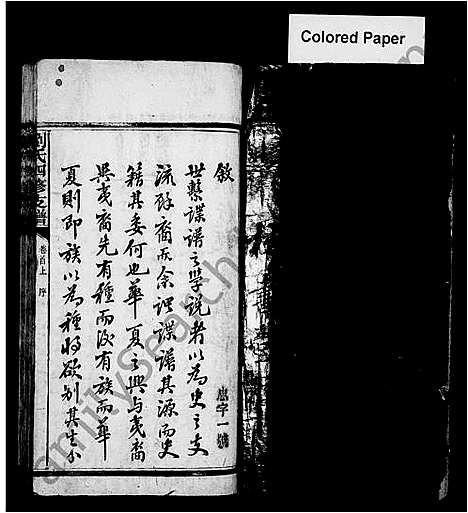 Colored Paper
敘
世繫諜譜之學說者以為史之支
流孫裔而余謂諜譜其源而史
籍其委何也華夏之興與夷裔
異夷裔先有種而後有族而華
夏則即族以為種將欲別其生分
字一號
劉氏四修支譜
卷首上 序